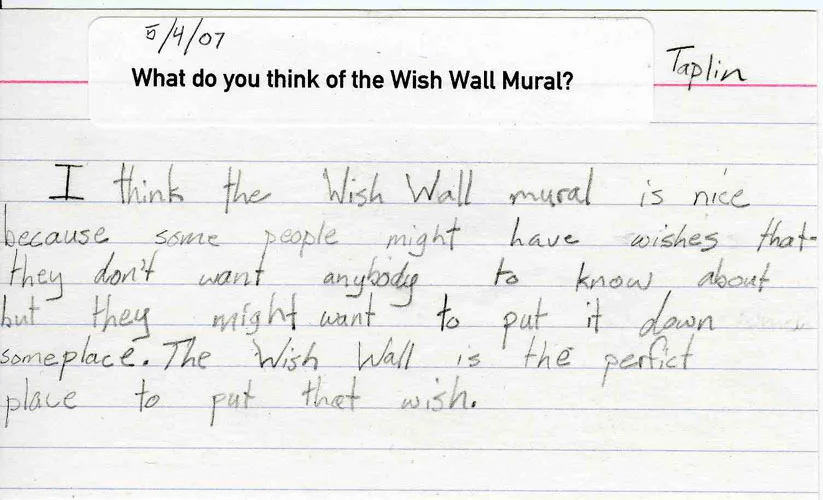 5/4/07
What do you think of the Wish Wall Mural?
Taplin
I think the Wish Wall mural is nice
because some people might have wishes that
they don't want anybody to know about
but they might want to put it down
someplace. The Wish Wall is the perfict
place to put that wish.